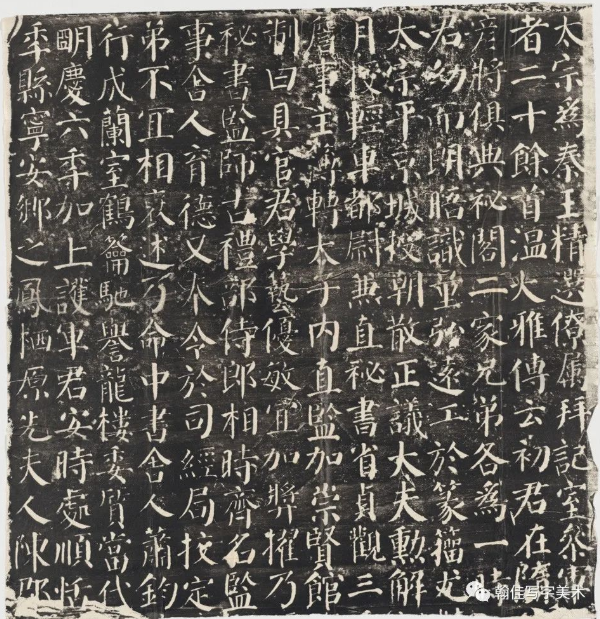 太宗為秦王精選僚属拜記室叅軍
者二十餘首温大雅傳云初君在隋
彦將俱典祕閣二家兄弟各為一時
君幼而朗晤識量弘遠工於篆籀尤
太宗平京城授朝散正議大夫勳解
月授輕車都尉兼直祕書省貞觀三
詹事主簿轉太子内直監加崇賢館
制曰具官君學藝優敏宜加奬擢乃
祕書監師古禮部侍郎相時齊名監
事舍人育德又奉令於司經局挍定
弟不宜相褒述乃命中書舍人蕭鈞
行成蘭室鶴籥馳譽龍樓委質當代
明慶六年加上護軍君安時處順恬
年縣寧安鄉之鳳栖原先夫人陳郡
翰佳写字美术